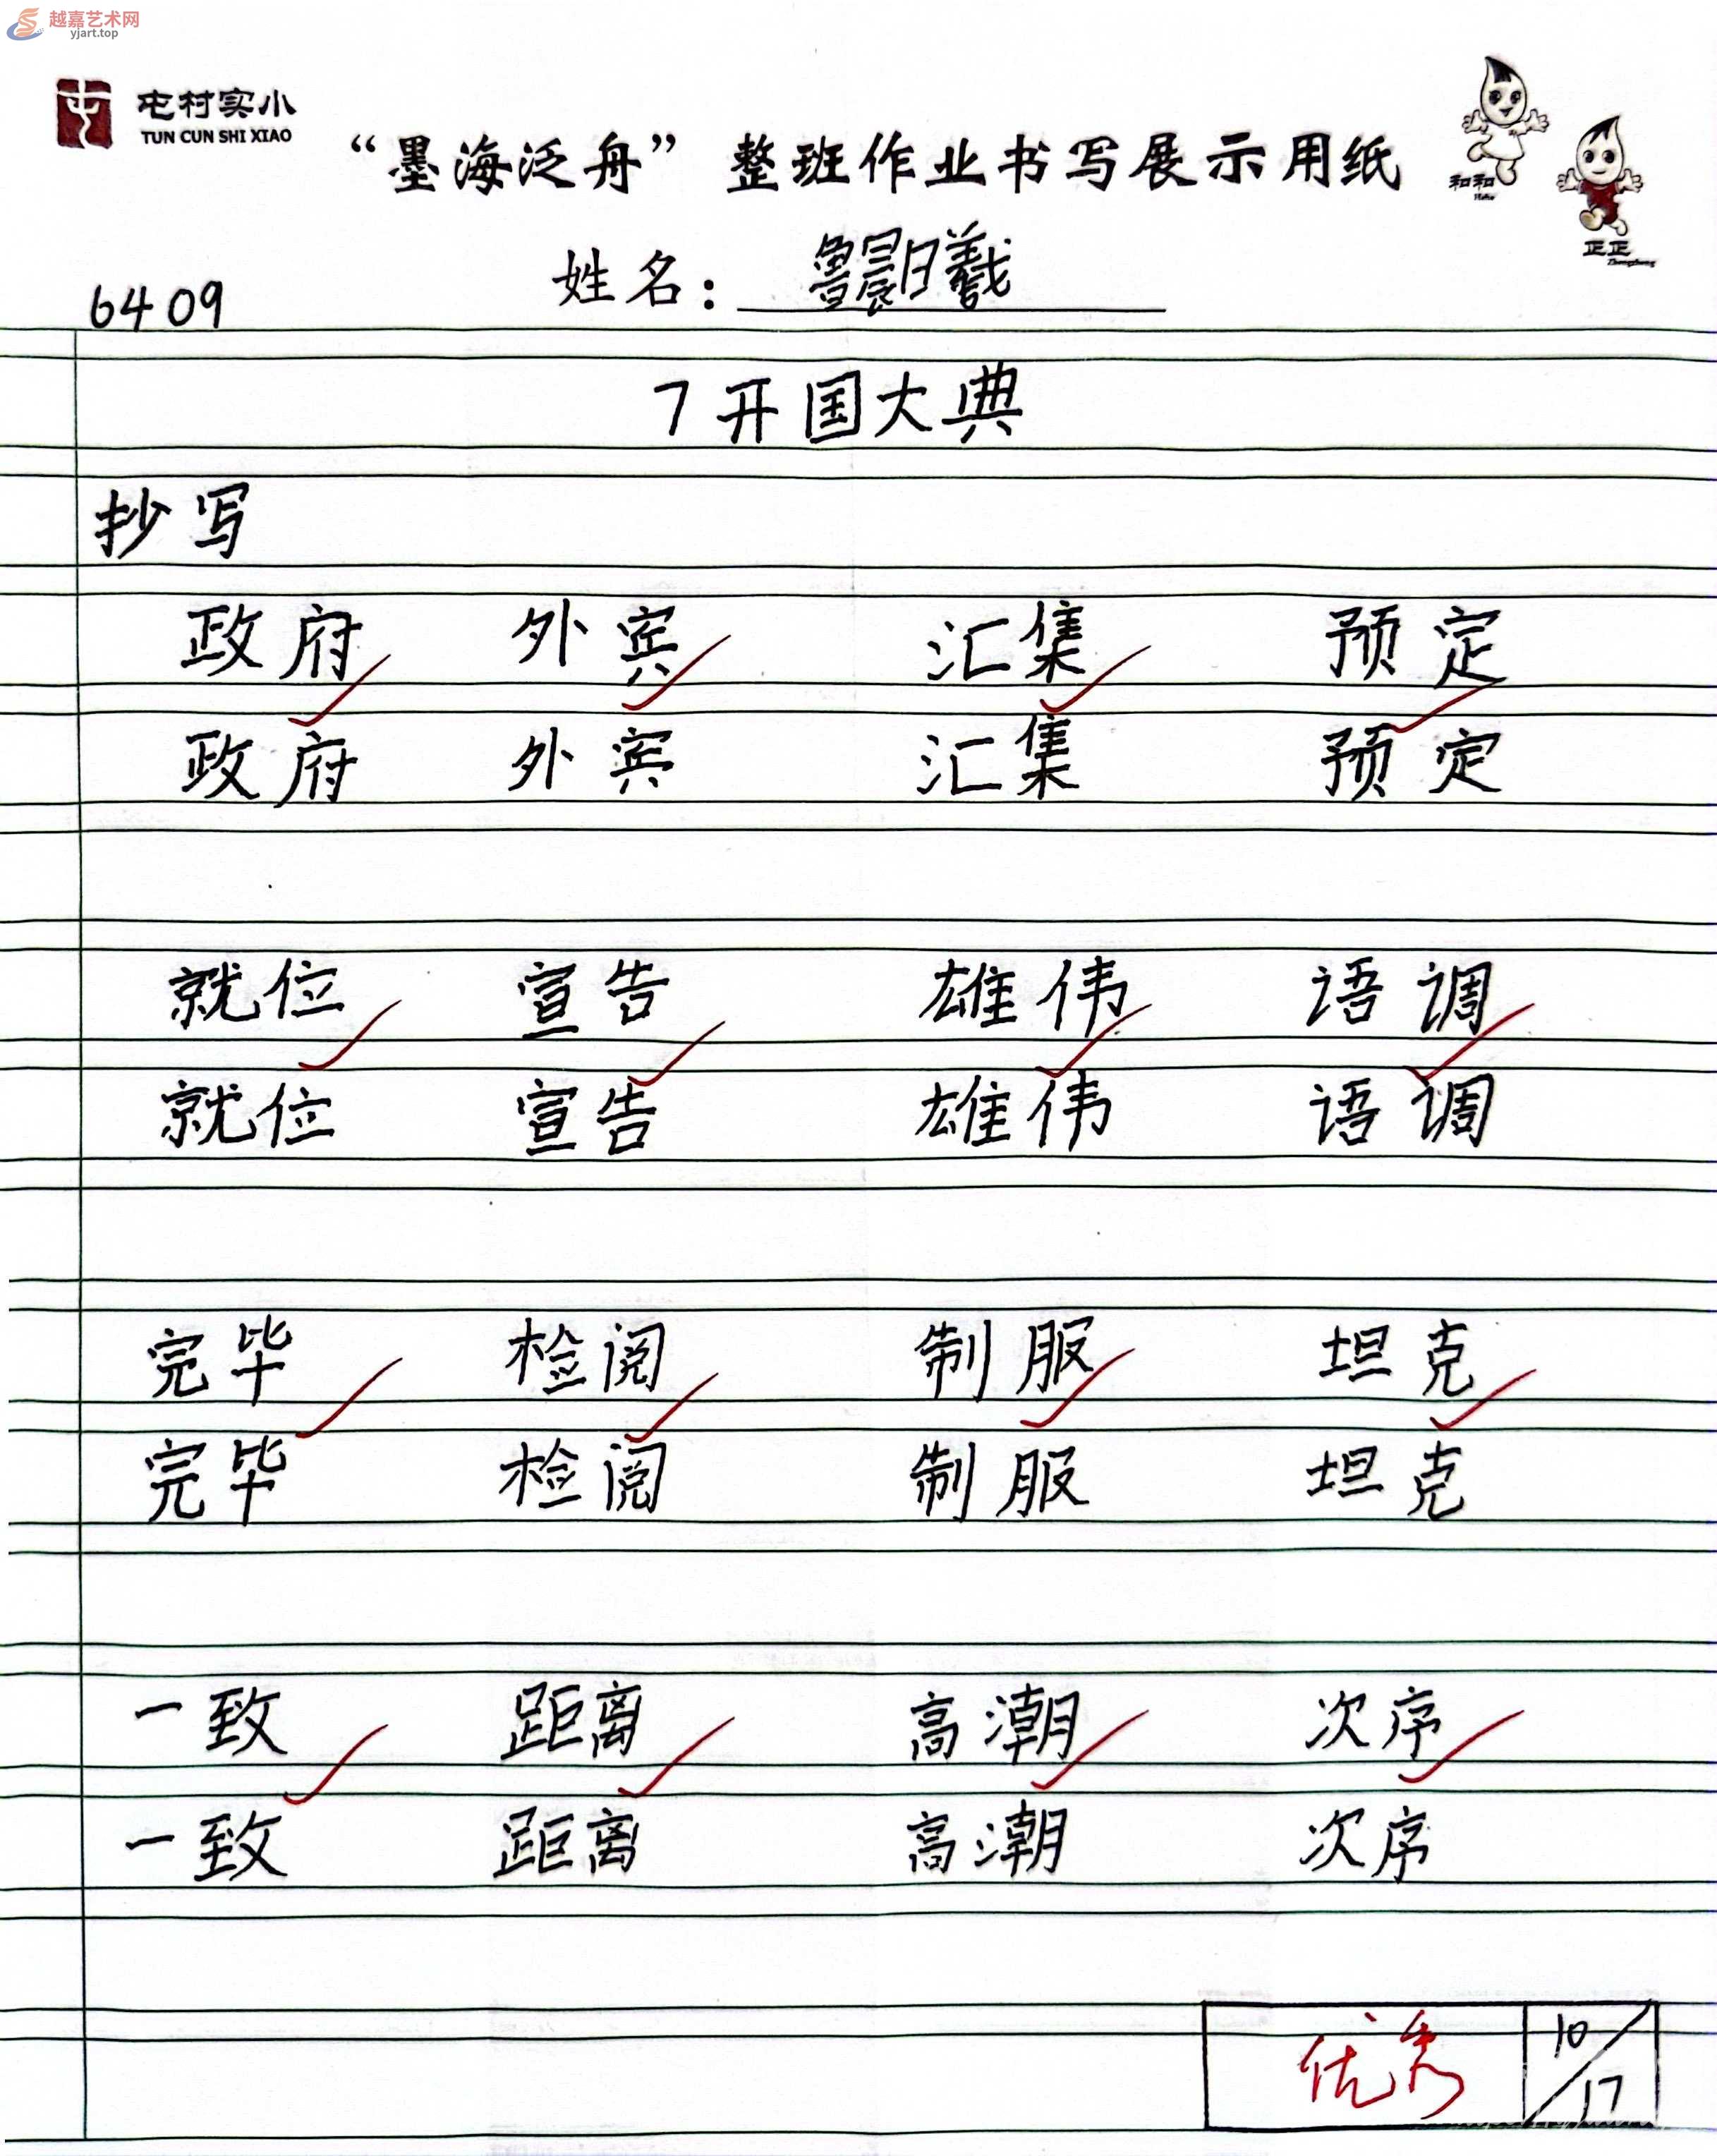 越嘉艺术网
yjart.top
屯村实小
TUN CUN SHI XIAO
“墨海泛舟”整班作业书写展示用纸
和和
Hehe
正正
Zhengzheng
姓名：曦
6409
7 开国大典
抄写
政府 外宾 汇集 预定
政府 外宾 汇集 预定
就位 宣告 雄伟 语调
就位 宣告 雄伟 语调
完毕 检阅 制服 坦克
完毕 检阅 制服 坦克
一致 距离 高潮 次序
一致 距离 高潮 次序
优秀 10/17